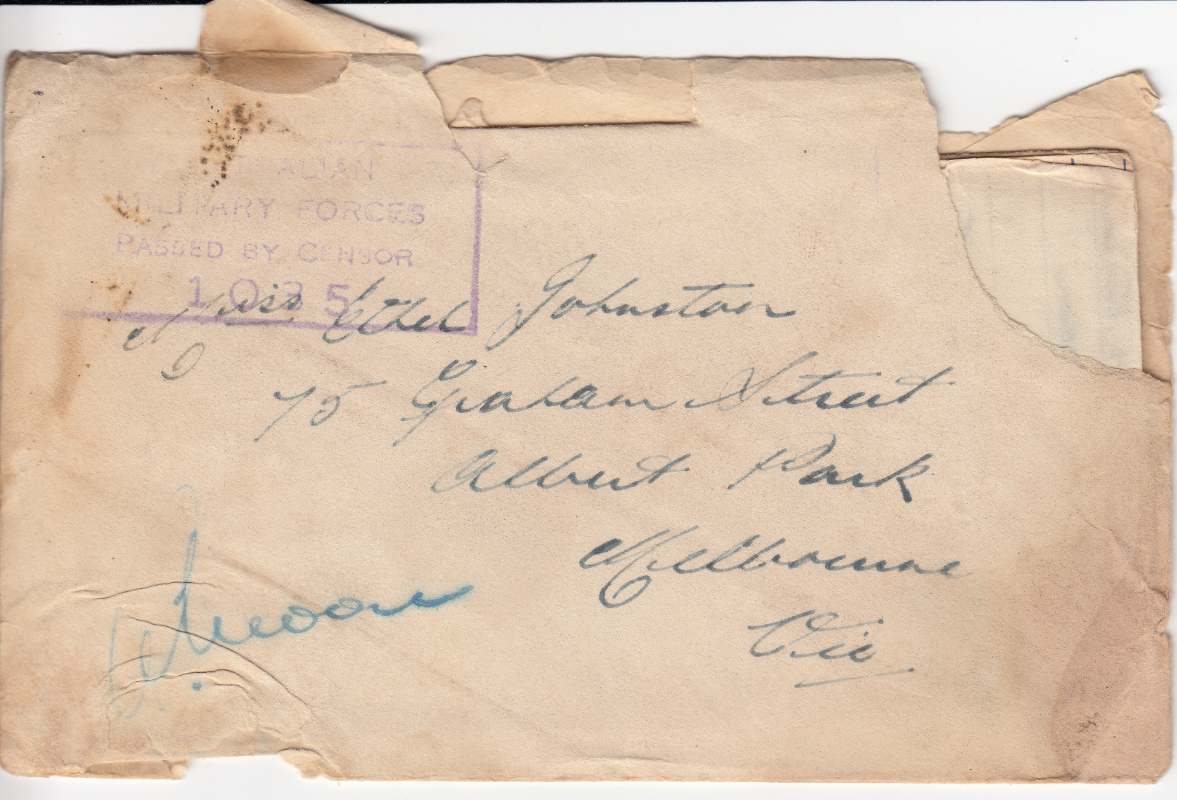 ALIAN
MILITARY FORCES
PASSED BY CENSOR
Miss Ethel Johnston
75 Graham Street
Albert Park
Melbourne
Vic